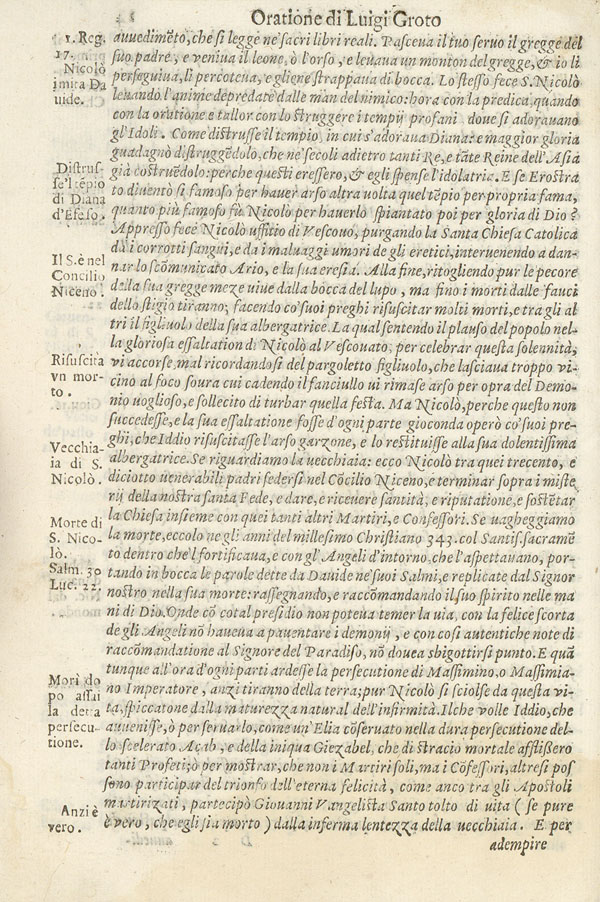 Oratione di Luigi Groto
1. Reg.
17.
Nicolò
imita Da
uide.
auuedimẽto, che si legge ne' sacri libri reali. Pasceua il tuo seruo il gregge del
suo padre, e veniua il leone, ò l'orso, e leuaua un monton del gregge, & io li
perseguiua, li percoteua, e gliene strappaua di bocca. Lo stesso fece S. Nicolò
leuando l'anime depredate dalle man del nimico: hora con la predica, quando
con la oratione e tallor con lo struggere i tempij profani doue si adorauano
gl'Idoli. Come distrusse il tempio, in cui s'adoraua Diana: e maggior gloria
guadagnò distruggẽdolo, che ne' secoli adietro tanti Re, e tãte Reine dell'Asia
già costruẽdolo: perche questi eressero, & egli spense l'idolatria. E se Erostra
to diuentò sì famoso per hauer arso altra uolta quel tẽpio per propria fama,
quanto più famoso fù Nicolò per hauerlo spiantato poi per gloria di Dio?
Distrus-
se'l tẽpio
di Diana
d'Efeso.
Appresso fece Nicolò uffitio di Vescouo, purgando la Santa Chiesa Catolica
da i corrotti sangui, e da i maluaggi umori de gli eretici, interuenendo a dan-
nar lo scõmunicato Ario, e la sua eresia. Alla fine, ritogliendo pur le pecore
della sua gregge meze uiue dalla bocca del lupo, ma fino i morti dalle fauci
dello stigio tiranno; facendo co' suoi preghi risuscitar molti morti, e tra gli al
tri il figliuolo della sua albergatrice. La qual sentendo il plauso del popolo nel-
la gloriosa essaltation di Nicolò al Vescouato, per celebrar questa solennità,
Il S. è nel
Concilio
Niceno.
vi accorse, mal ricordandosi del pargoletto figliuolo, che lasciaua troppo vi-
cino al foco soura cui cadendo il fanciullo ui rimase arso per opra del Demo-
nio uoglioso, e sollecito di turbar quella festa. Ma Nicolò, perche questo non
succedesse, e la sua essaltatione fosse d'ogni parte gioconda operò co' suoi pre-
ghi, che Iddio risuscitasse l'arso garzone, e lo restituisse alla sua dolentissima
Risuscita
vn mor-
to.
albergatrice. Se riguardiamo la uecchiaia: ecco Nicolò tra quei trecento, e
diciotto uenerabili padri sedersi nel Cõcilio Niceno, e terminar sopra i miste
rij della nostra santa Fede, e dare, e riceuere santità, e riputatione, e sostẽtar
la Chiesa insieme con quei tanti altri Martiri, e Confessori. Se uagheggiamo
Vecchia-
ia di S.
Nicolò.
la morte, eccolo ne gli anni del millesimo Christiano 343. col Santiss. sacramẽ
to dentro che'l fortificaua, e con gl'Angeli d'intorno, che l'aspettauano, por-
tando in bocca le parole dette da Dauide ne' suoi Salmi, e replicate dal Signor
nostro nella sua morte: rassegnando, e raccõmandando il suo spirito nelle ma
ni di Dio. Onde cõ cotal presidio non poteua temer la uia, con la felice scorta
Morte di
S. Nico-
lò.
Salm. 30
Luc. 22.
de gli Angeli nõ haueua a pauentare i demonij, e con così autentiche note di
raccõmandatione al Signore del Paradiso, nõ douea sbigottirsi punto. E quã
tunque all'ora d'ogni parti ardesse la persecutione di Massimino, o Massimia-
no Imperatore, anzi tiranno della terra; pur Nicolò si sciolse da questa vi-
ta, spiccatone dalla maturezza natural dell'infirmità. Ilche volle Iddio, che
auuenisse, ò per seruarlo, come un'Elia cõseruato nella dura persecutione del-
lo scelerato Acab, e della iniqua Giezabel, che di stracio mortale afflissero
tanti Profeti; ò per mostrar, che non i Martiri soli, ma i Cõfessori, altresì pos
sono participar del trionfo dell'eterna felicità, come anco tra gli Apostoli
Morì do
po assai
la detta
persecu-
tione.
martirizati, partecipò Giouanni Vangelista Santo tolto di uita (se pure
è vero, che egli sia morto) dalla inferma lentezza della uecchiaia. E per
Anzi è
vero.
adempire